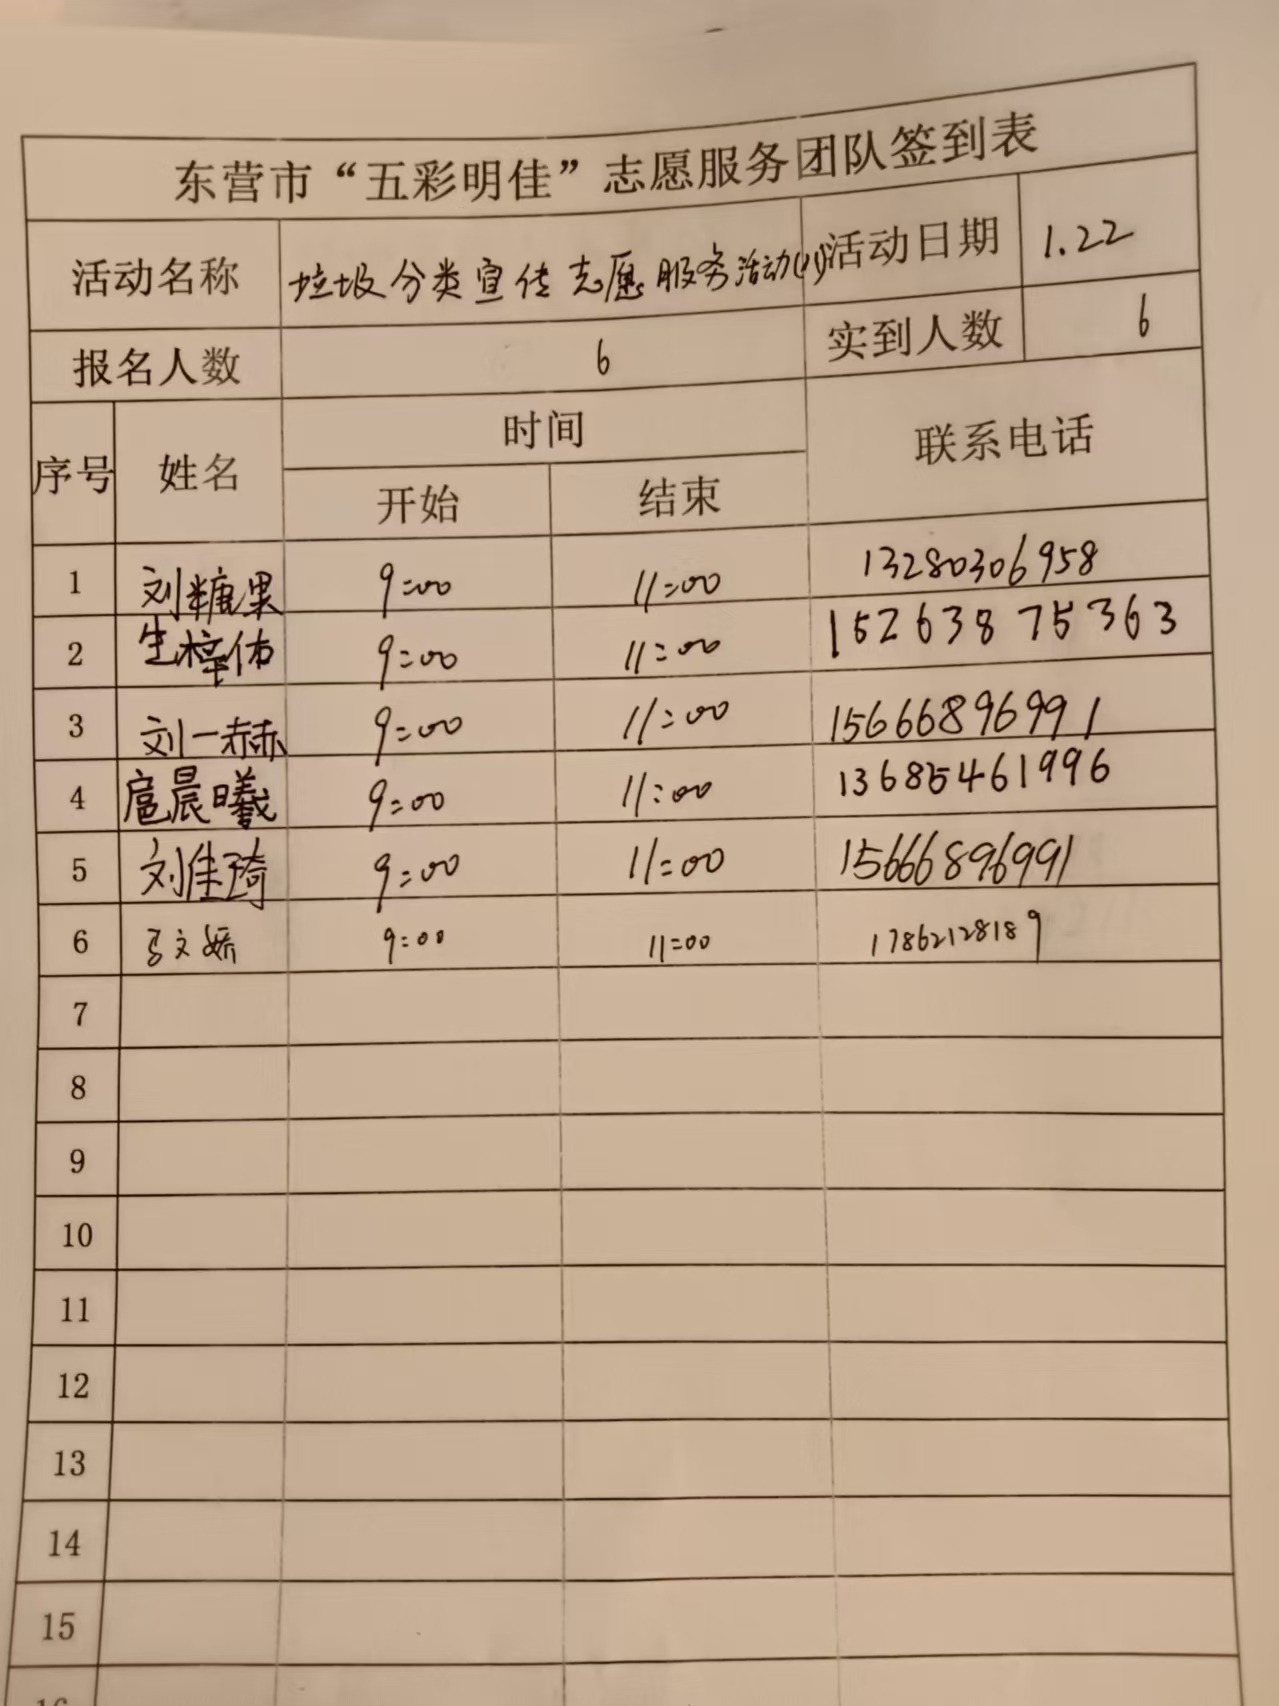 东营市“五彩明佳”志愿服务团队签到表
活动名称 垃圾分类宣传志愿服务活动 活动日期 1.22
报名人数 6 实到人数 6
序号 姓名 时间 联系电话
开始 结束
1 刘糖果 9:00 11:00 13280306958
2 生梓佑 9:00 11:00 15263875363
3 刘一赫 9:00 11:00 15666896991
4 扈晨曦 9:00 11:00 13685461996
5 刘佳琦 9:00 11:00 15666896991
6 文娇 9:00 11:00 17862128189
7
8
9
10
11
12
13
14
15